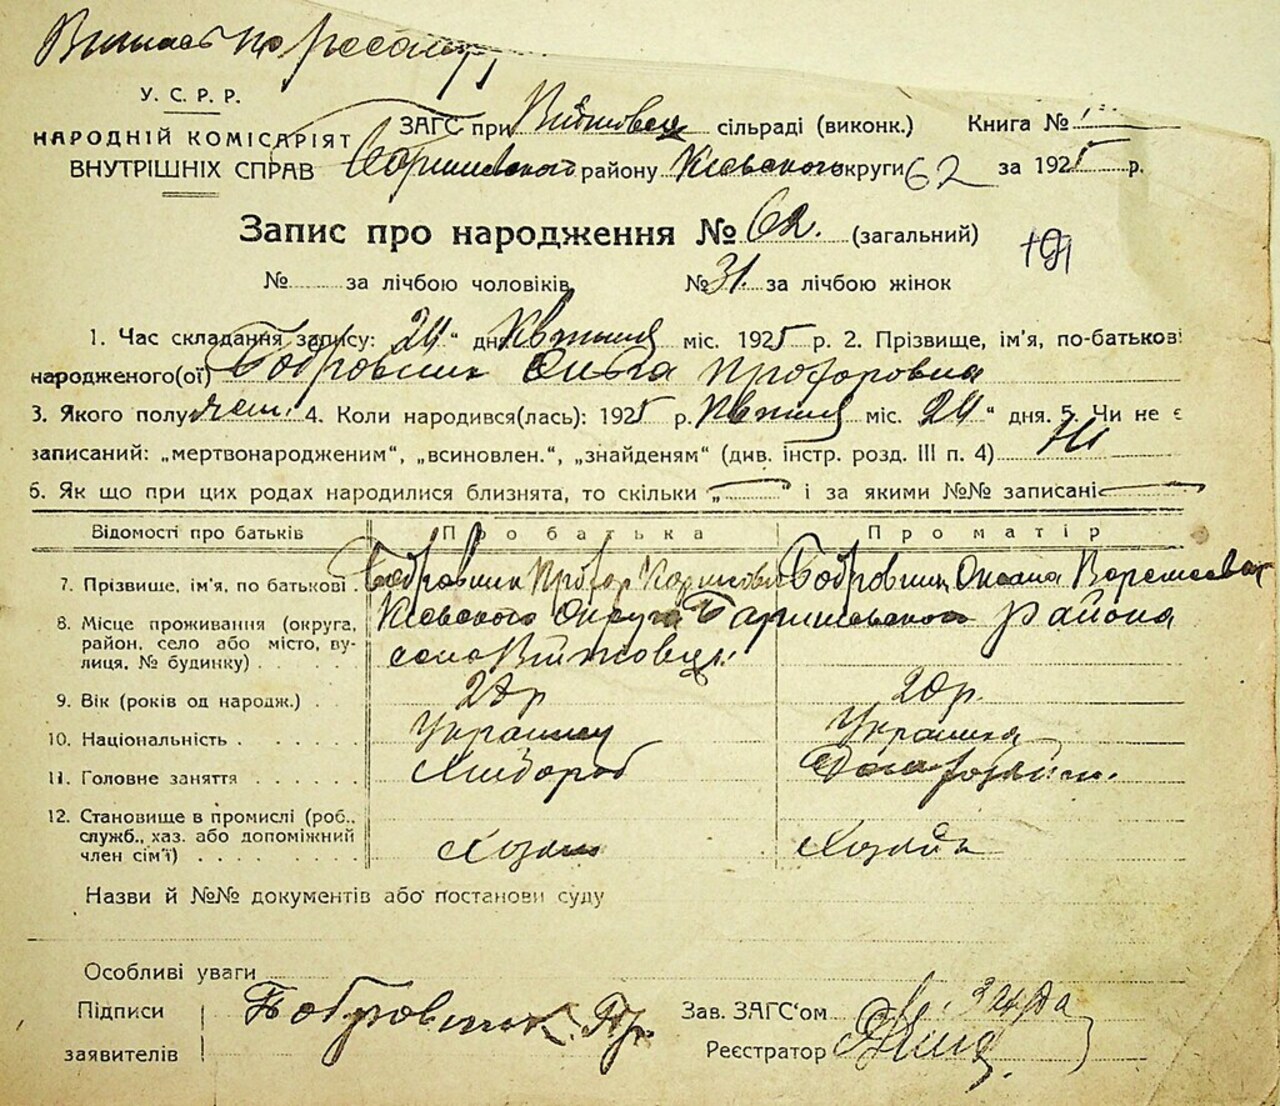 У. С. Р. Р.
НАРОДНІЙ КОМІСАРІЯТ
ВНУТРІШНІХ СПРАВ
ЗАГС при сільраді (виконк.) Книга №
району Киевского округи 62 за 1925 р.
Запис про народження № 62. (загальний)
№ за лічбою чоловіків № 31. за лічбою жінок
1. Час складання запису: 24 " дня Квітня міс. 1925 р. 2. Прізвище, ім'я, по-батькові
народженого(ої) Бобровник Ольга Прохоровна
3. Якого полу жен. 4. Коли народився(лась): 1925 р. Квітня міс. 24 " дня. 5. Чи не є
записаний: „мертвонародженим“, „всиновлен.“, „знайденям“ (див. інстр. розд. III п. 4) Ні
6. Як що при цих родах народилися близнята, то скільки „ — “ і за якими №№ записані —
Відомості про батьків Про батька Про матір
7. Прізвище, ім'я, по батькові Бобровник Прохор Бобровник Оксана
8. Місце проживання (округа, район, село або місто, вулиця, № будинку) Киевского Округа Баришевського района
село
9. Вік (років од народж.) 20р.
10. Національність Украинец Украинка
11. Головне заняття Хлібороб
12. Становище в промислі (роб., служб., хаз. або допоміжний член сім'ї) Хозяин
Назви й №№ документів або постанови суду
Особливі уваги
Підписи заявителів Бобровник Пр.
Зав. ЗАГС'ом
Реєстратор